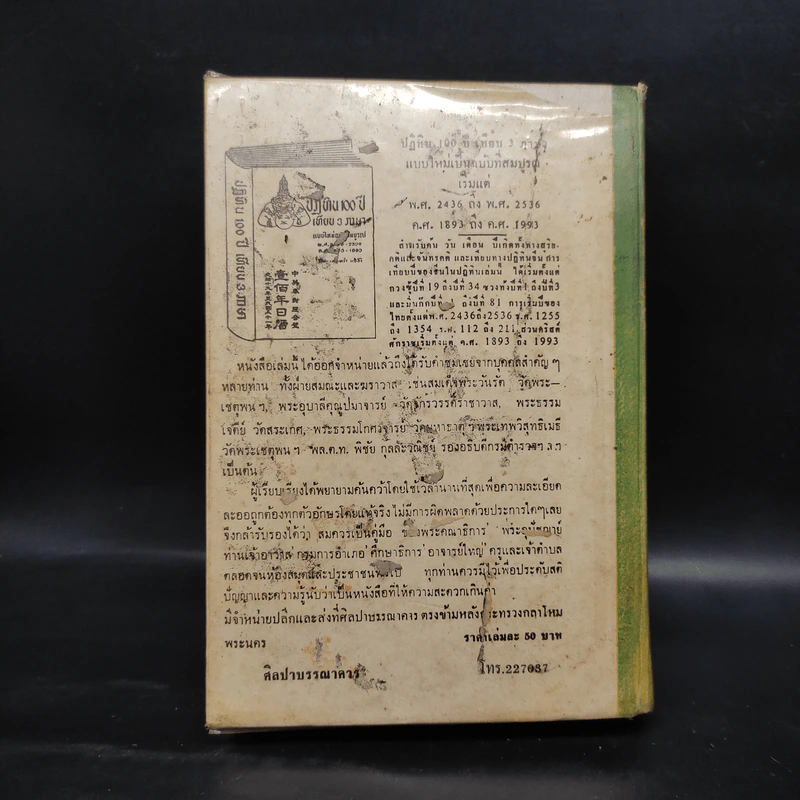 ปฏิทิน 100 ปี เทียบ 3 ภาษา
แบบใหม่เป็นฉบับที่สมบูรณ์
เริ่มแต่
พ.ศ. 2436 ถึง พ.ศ. 2536
ค.ศ. 1893 ถึง ค.ศ. 1993
ปฏิทิน 100 ปี เทียบ 3 ภาษา
ปฏิทิน ๑๐๐ ปี
เทียบ ๓ ภาษา
壹佰年日曆
สำหรับค้น วัน เดือน ปีเกิดทั้งทางสุริย-
คติและจันทรคติ และเทียบทางปฏิทินจีน การ
เทียบปีของจีนในปฏิทินเล่มนี้ ได้เริ่มตั้งแต่
กวงซู้ปีที่ 19 ถึงปีที่ 34 ซวงท้งปีที่1 ถึงปีที่3
และมิ่นก๊กปีที่ 1 ถึงปีที่ 81 การเริ่มปีของ
ไทยตั้งแต่พ.ศ. 2436ถึง2536 จ.ศ. 1255
ถึง 1354 ร.ศ. 112 ถึง 211 ส่วนคริสต์
ศักราชเริ่มตั้งแต่ ค.ศ. 1893 ถึง 1993
หนังสือเล่มนี้ ได้ออกจำหน่ายแล้วถึงได้รับคำชมเชยจากบุคคลสำคัญ ๆ
หลายท่าน ทั้งฝ่ายสมณะและฆราวาส เช่นสมเด็จพระวันรัต วัดพระ—
เชตุพน ฯ, พระอุบาลีคุณูปมาจารย์ วัดจักรวรรดิ์ราชาวาส, พระธรรม
เจดีย์ วัดสระเกศ, พระธรรมโกศาจารย์ วัดมหาธาตุ ฯ พระเทพวิสุทธิเมธี
วัดพระเชตุพน ฯ พล.ต.ท. พิชัย กุลละวณิชย์ รองอธิบดีกรมตำรวจ ฯลฯ
เป็นต้น
ผู้เรียบเรียงได้พยายามค้นคว้าโดยใช้เวลานานที่สุดเพื่อความละเอียด
ละออถูกต้องทุกตัวอักษรโดยแท้จริง ไม่มีการผิดพลาดด้วยประการใดๆเลย
จึงกล้ารับรองได้ว่า สมควรเป็นคู่มือ ของพระคณาธิการ พระอุปัชฌาย์
ท่านเจ้าอาวาส กรมการอำเภอ ศึกษาธิการ อาจารย์ใหญ่ ครูและเจ้าตำบล
ตลอดจนห้องสมุดและประชาชนทั่วไป ทุกท่านควรมีไว้เพื่อประดับสติ
ปัญญาและความรู้นับว่าเป็นหนังสือที่ให้ความสะดวกเกินค่า
มีจำหน่ายปลีกและส่งที่ศิลปาบรรณาคาร ตรงข้ามหลังกระทรวงกลาโหม
พระนคร ราคาเล่มละ 50 บาท
ศิลปาบรรณาคาร โทร.227037